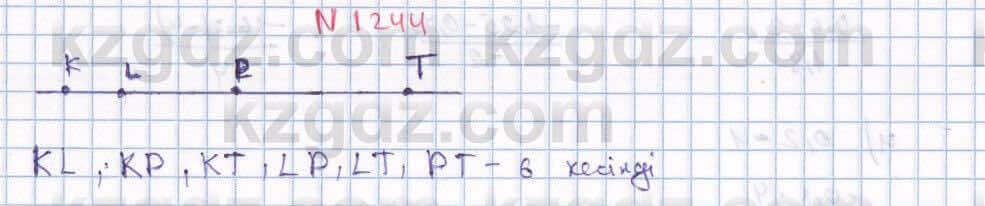 N 1244
kzgdz.com kzgdz.com
K L P T
kzgdz.com
KL, KP, KT, LP, LT, PT - 6 кесінді